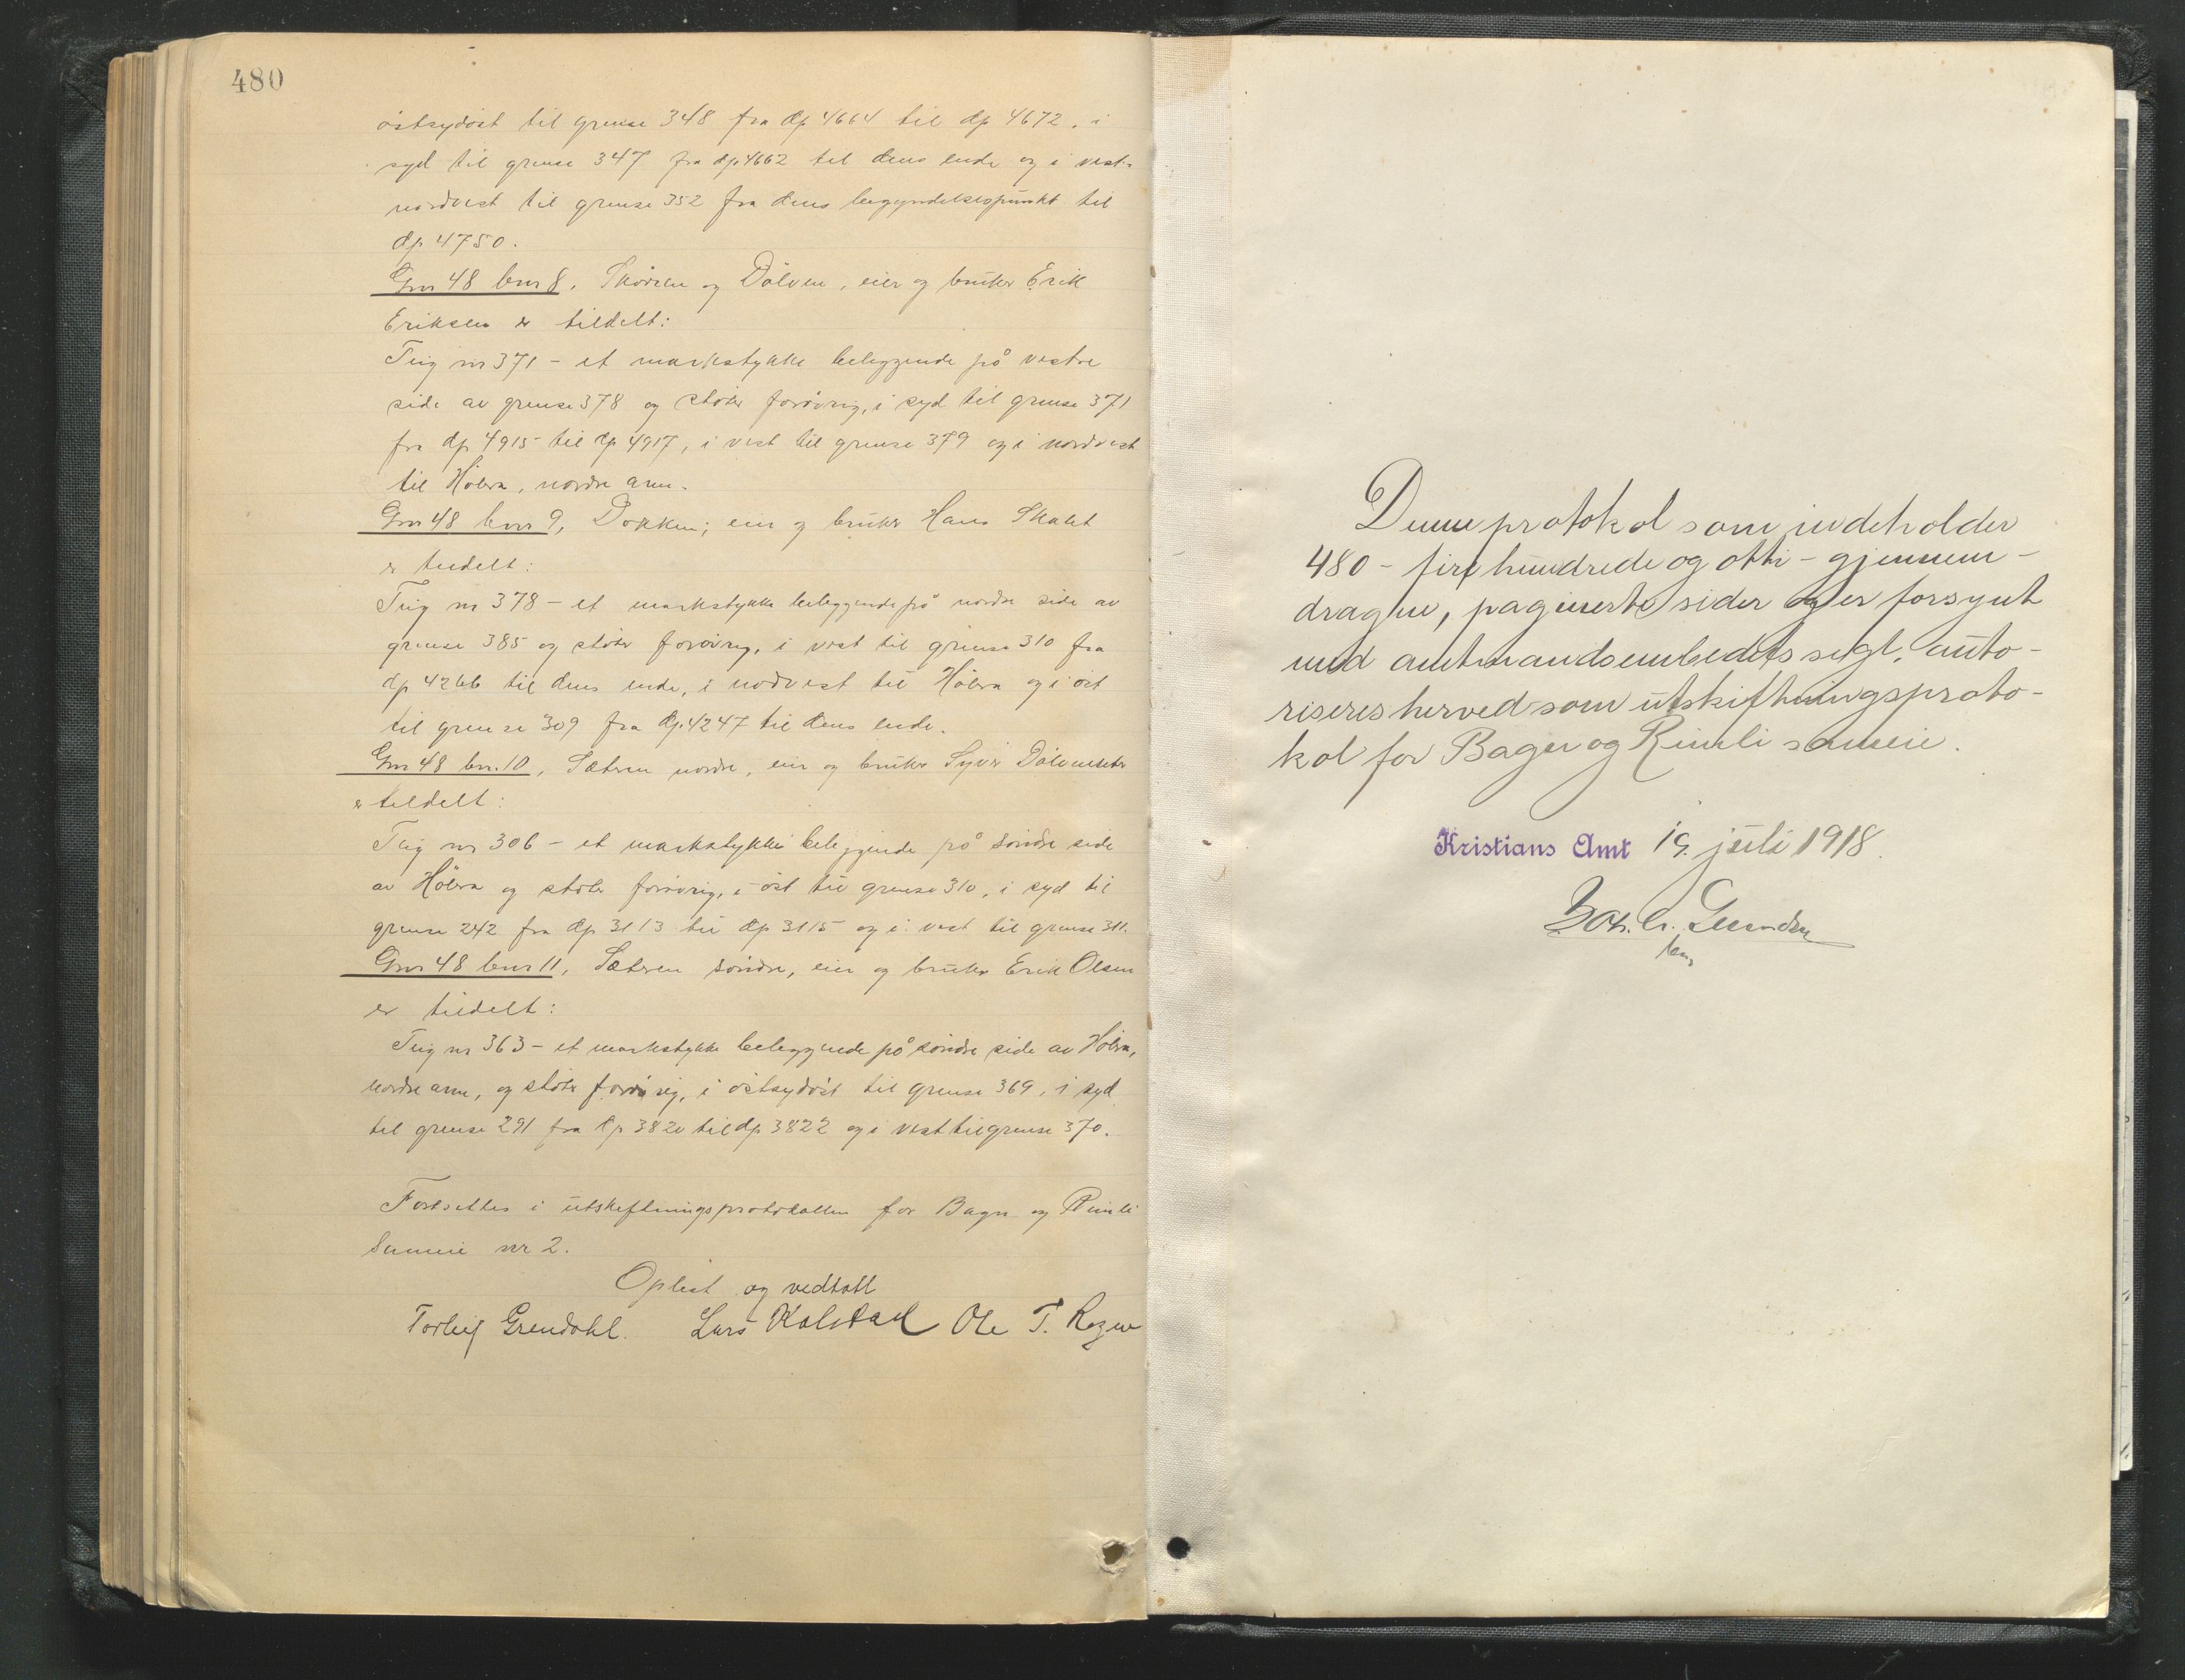 480
østsydøst til grense 348 fra dp 4664 til dp 4672, i
syd til grense 347 fra dp 4662 til dens ende og i vest-
nordvest til grense 352 fra dens begyndelsespunkt til
dp 4750.
Gnr 48 bnr 8, og Dølven, eier og bruker Erik
Eriksen er tildelt:
Teig nr 371 – et markstykke beliggende på vestre
side av grense 378 og støter forøvrig, i syd til grense 371
fra dp 4915 til dp 4917, i vest til grense 379 og i nordvest
til Hølera, nordre arm.
Gnr 48 bnr 9, Dokken; eier og bruker Hans Skalet
er tildelt:
Teig nr 378 – et markstykke beliggende på nordre side av
grense 385 og støter forøvrig, i vest til grense 310 fra
dp 4266 til dens ende, i nordvest til Hølera og i øst
til grense 309 fra dp. 4247 til dens ende.
Gnr 48 bnr. 10, Sæteren nordre, eier og bruker Syver Dølvenseter
er tildelt:
Teig nr 306 – et markstykke beliggende på søndre side
av Hølera og støter forøvrig, i øst til grense 310, i syd til
grense 242 fra dp 3113 til dp 3115 og i vest til grense 311.
Gnr 48 bnr 11, Sæteren søndre, eier og bruker Erik Olsen
er tildelt:
Teig nr 363 – et markstykke beliggende på søndre side av Hølera,
nordre arm, og støter forøvrig, i østsydøst til grense 369, i syd
til grense 291 fra dp 3820 til dp 3822 og i vest til grense 370.
Fortsettes i utskiftningsprotokollen for Bagn og Reinli
Sameie nr 2.
Oplest og vedtatt
Torleif Grendahl. Lars Kolstad Ole T. Ragen
Denne protokol som indeholder
480 – fire hundrede og otti – gjennem-
dragne, paginerte sider og er forsynt
med amtmandsembedets segl, auto-
riseres herved som utskiftningsproto-
kol for Bagn og Reinli sameie.
Kristians Amt 19. juli 1918.